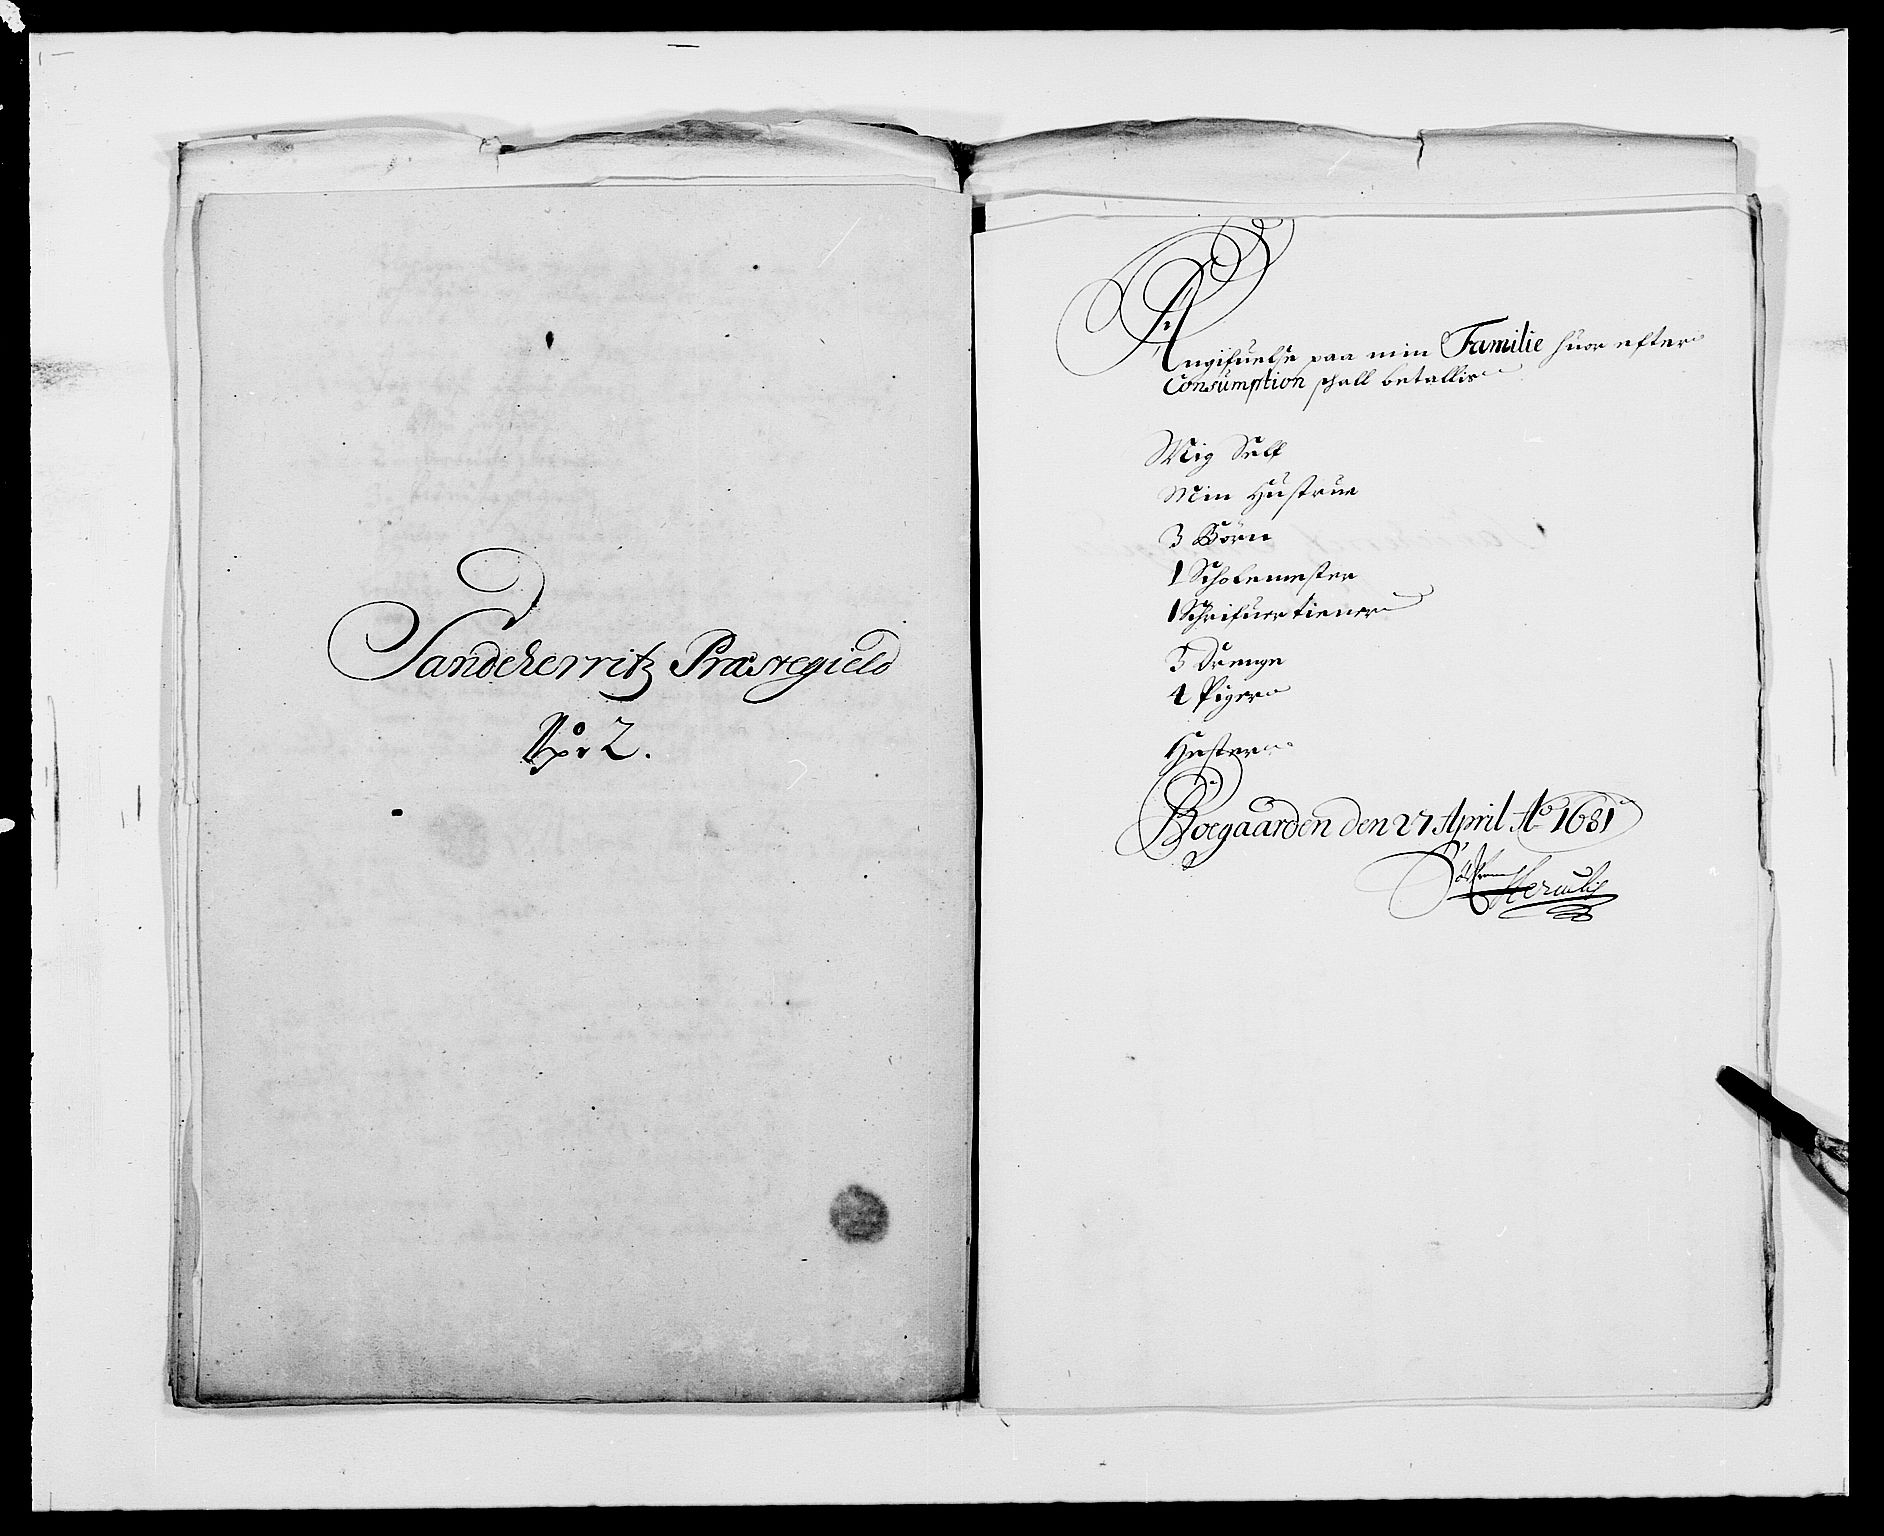 Sandeherritz Præstegield
No 2.
Angifuelse paa min Familie huor efter
Consumption schall betallis
Mig Self
Min Hustrue
3 Börn
1 Scholemester
1 Schrifuertiener
3 Drenge
4 Piger
Boegaarden den 27 April Ao 1681